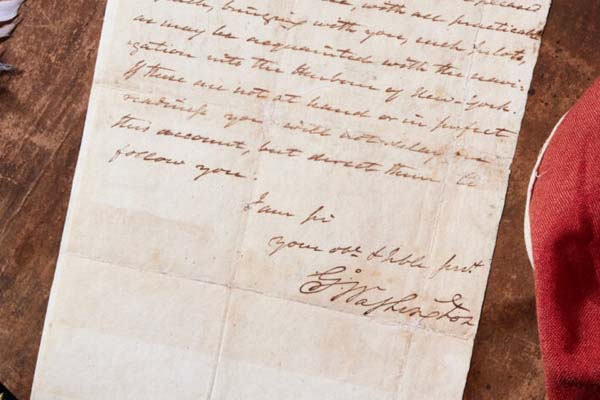 with all practicable
bringing with you, such Pilots,
as may be acquainted with the navi-
gation into the Harbour of New-York.
If these are not at hand or in perfect
readiness you will not delay on
this account, but direct them to
follow you
I am Sir
your obt. & hble servt.
Go: Washington